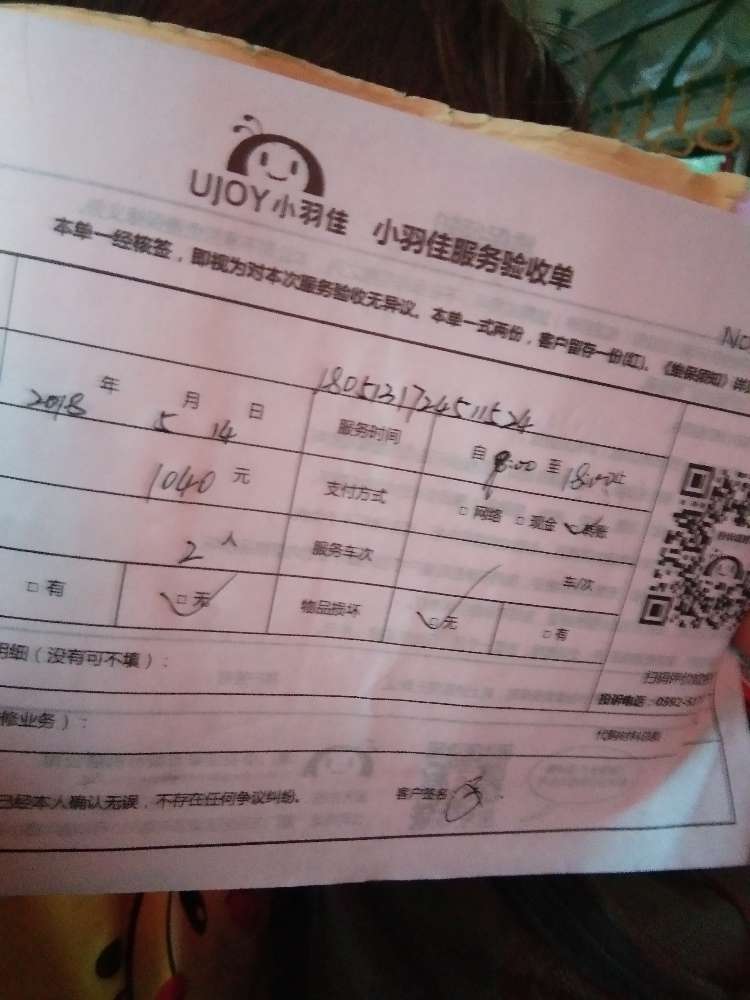 UJOY小羽佳 小羽佳服务验收单
No
本单一经核签，即视为对本次服务验收无异议。本单一式两份，客户留存一份(红)。
180512172451524
2018 年 5 月 14 日 服务时间 自 8:00 至 18:00 止
1040 元 支付方式 □网络 □现金 ☑转账
2 人 服务车次 车/次
□有 ☑无 物品损坏 ☑无 □有
明细（没有可不填）：
修业务）：
投诉电话：0592-5
已经本人确认无误，不存在任何争议纠纷。 客户签名